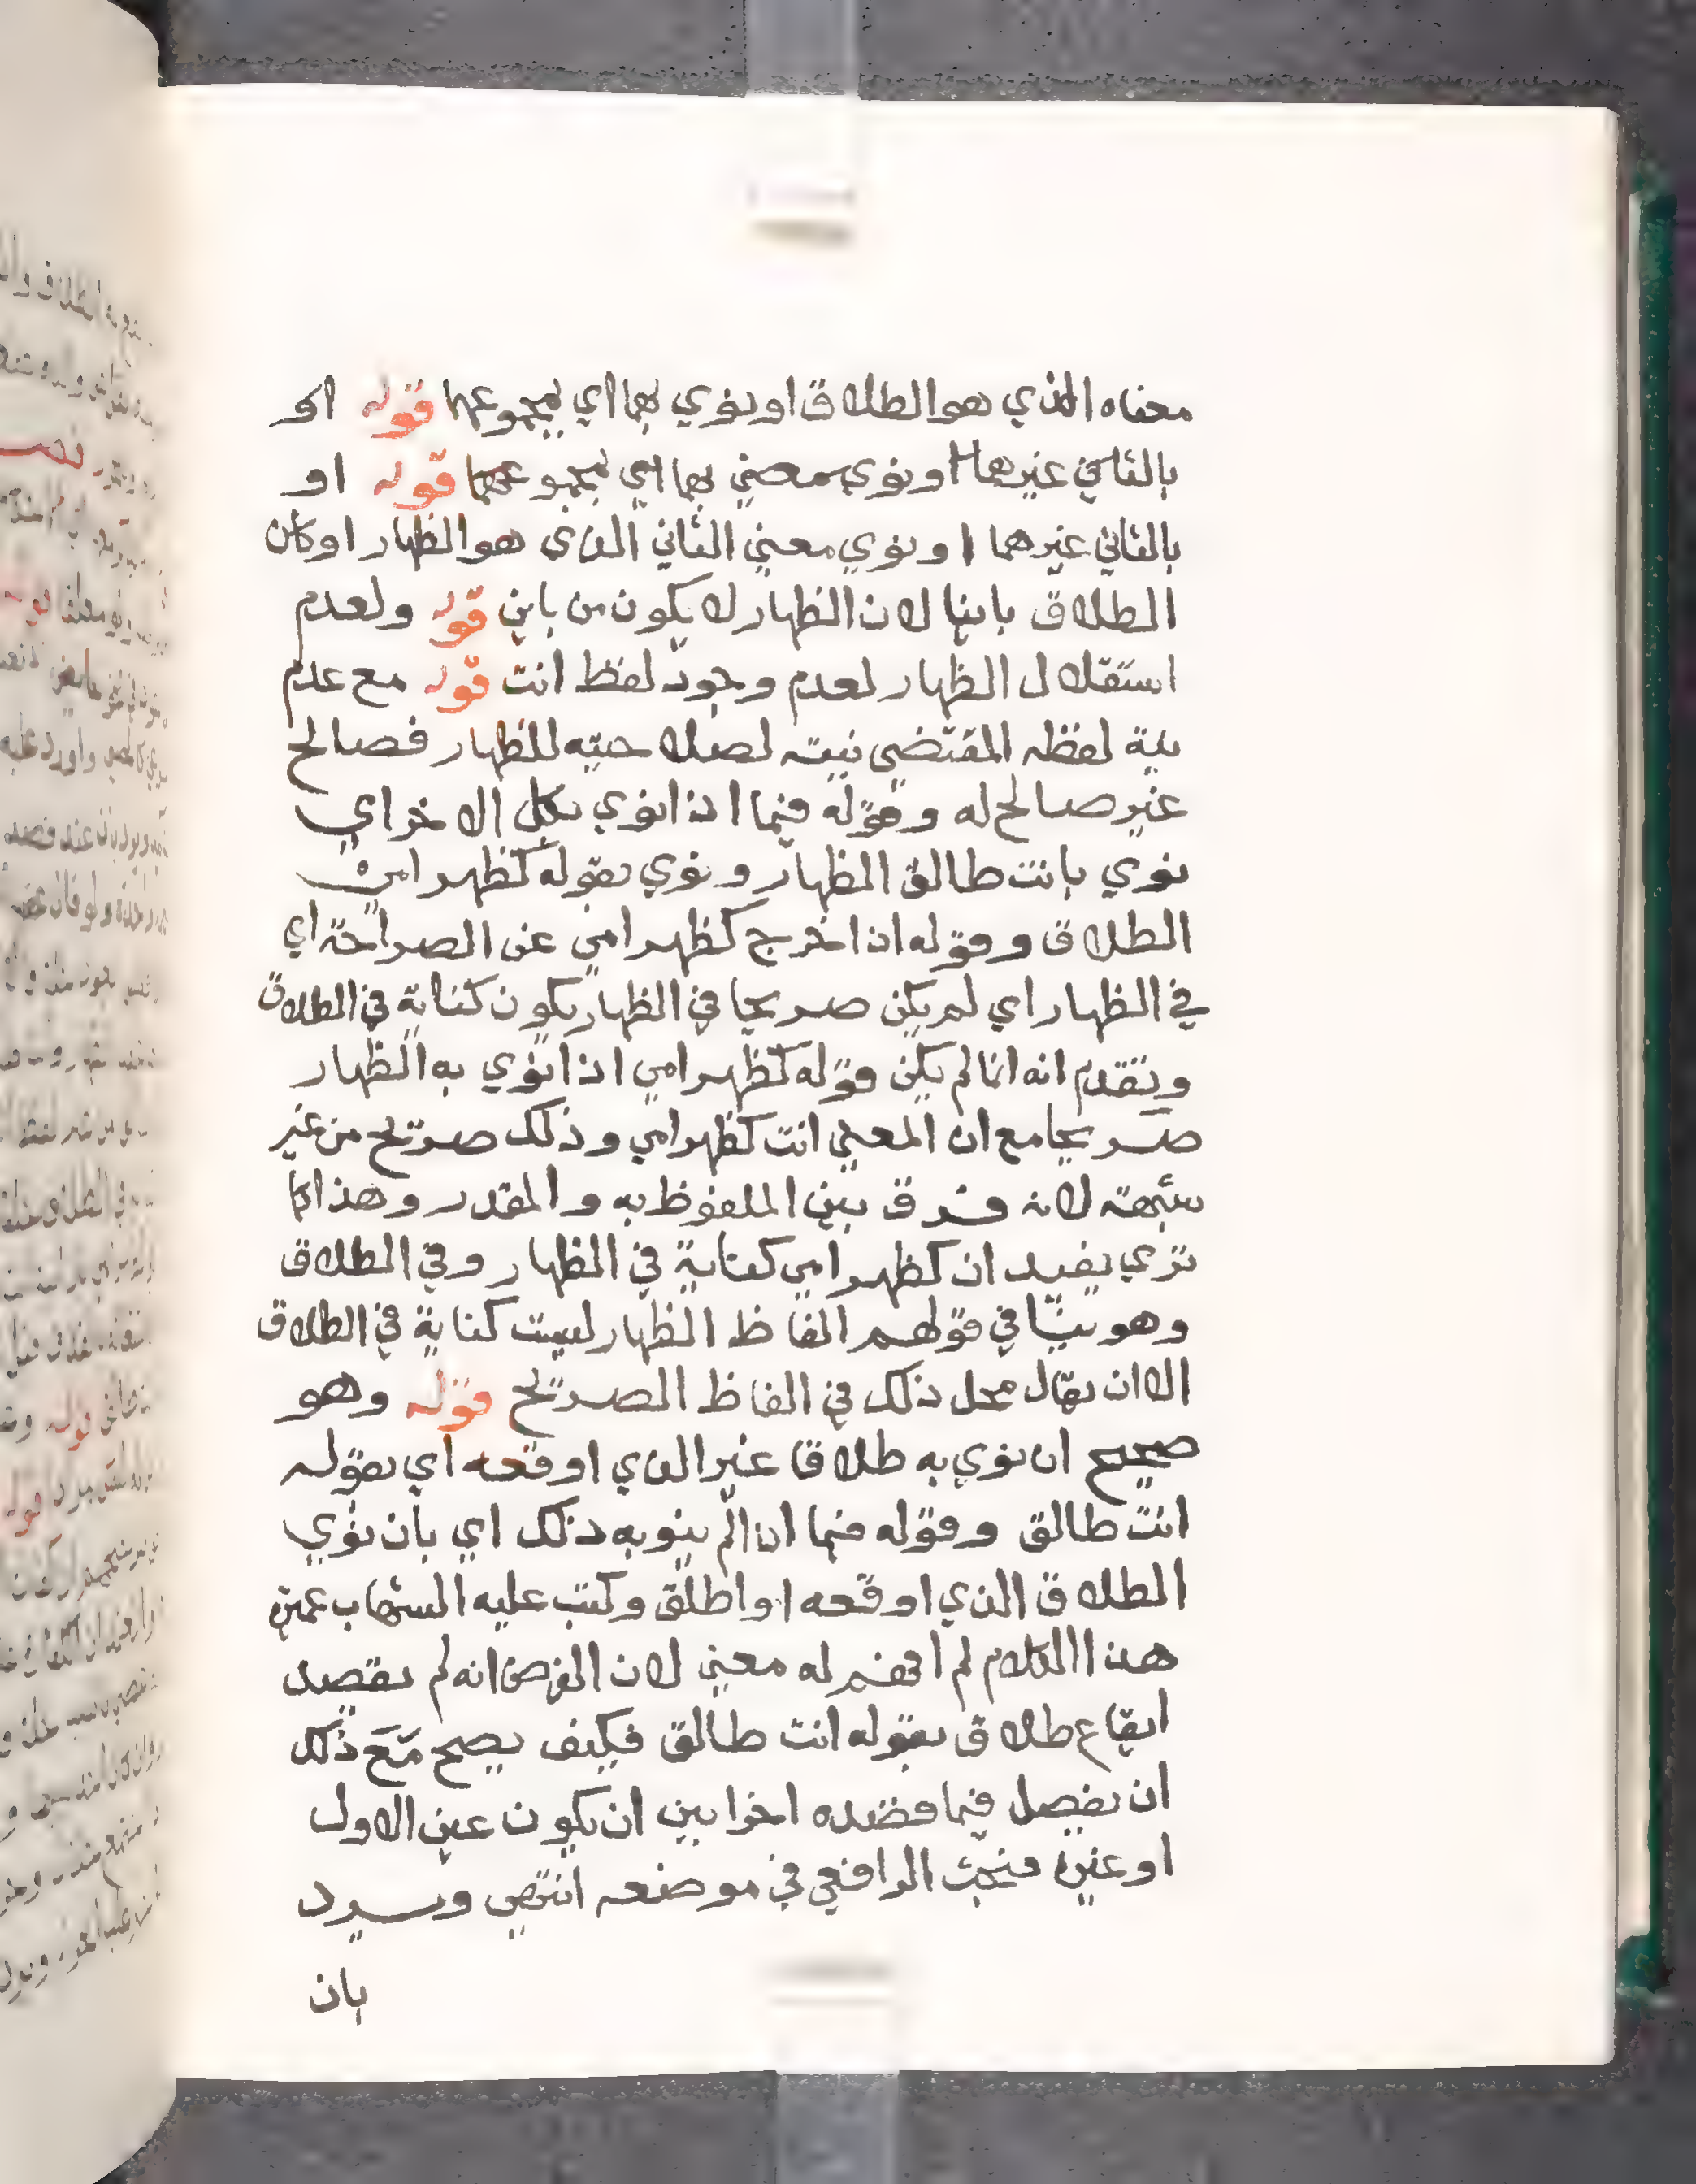 معناه الذي هو الطلاق او نوي بهما اي بمجموعهما قوله او
بالثاني غيرهما او نوي بمعني بهما اي بمجموعهما قوله او
بالثاني غيرهما او نوي معني الثاني الذي هو الظهار او كان
الطلاق باينا لان الظهار لا يكون من باين قوله ولعدم
استقلال الظهار لعدم وجود لفظ انت قوله مع عدم
نية لفظه المقتضي نيته لصلاحيته للظهار فصالح
غير صالح له وقوله فيما اذا نوي بكل الاخر اي
نوي بانت طالق الظهار ونوي بقوله كظهر امي
الطلاق وقوله اذا خرج كظهر امي عن الصراحة اي
في الظهار اي لم يكن صريحا في الظهار يكون كناية في الطلاق
وتقدم انه انما لم يكن قوله كظهر امي اذا نوي به الظهار
صريحا مع ان المعني انت كظهر امي وذلك صريح من غير
شبهة لانه فرق بين الملفوظ به والمقدر وهذا كما
تري يفيد ان كظهر امي كناية في الظهار وفي الطلاق
وهو ينافي قولهم الفاظ الظهار ليست كناية في الطلاق
الا ان يقال محل ذلك في الفاظ الصريح قوله وهو
صحيح ان نوي به طلاقا غير الذي اوقعه اي بقوله
انت طالق وقوله فيما اذا لم ينو به ذلك اي بان نوي
الطلاق الذي اوقعه او اطلق وكتب عليه الشهاب عميرة
هذا الكلام لم افهم له معني لان الفرض انه لم يقصد
ايقاع طلاق بقوله انت طالق فكيف يصح مع ذلك
ان يفصل فيما قصده اخرا بين ان يكون عين الاول
او غيره فبحث الرافعي في موضعه انتهي وسيرد
بان